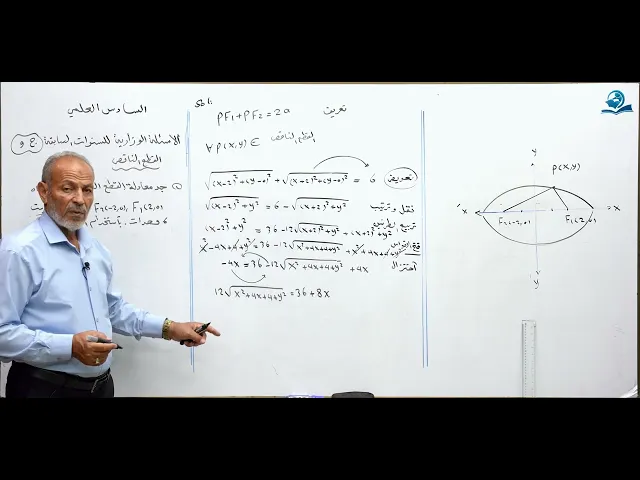 السادس العلمي
الأسئلة الوزارية للسنوات السابقة
القطع الناقص
جد معادلة القطع
F₂(-2,0), F₁(2,0)
وحدات. باستخدام
Sol:
PF₁+PF₂=2a تعريف
∀ P(x,y) ∈ القطع الناقص
√(x-2)²+(y-0)² + √(x+2)²+(y-0)² = 6 تعويض
√(x-2)²+y² = 6 - √(x+2)²+y² نقل وترتيب
(x-2)²+y² = 36-12√(x+2)²+y² + (x+2)²+y² تربيع الطرفين
x²-4x+4+y² = 36-12√x²+4x+4+y² + x²+4x+4+y²
-4x = 36-12√x²+4x+4+y² + 4x اختزال
12√x²+4x+4+y² = 36+8x
y
P(x,y)
x
x
F₂(-2,0)
F₁(2,0)
y